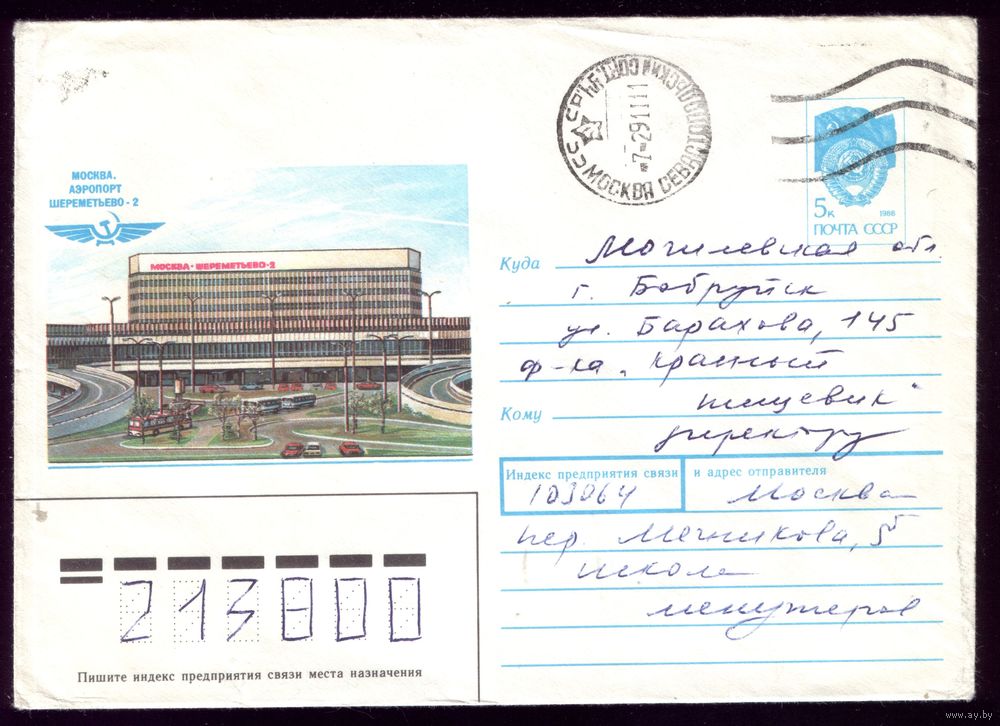 МОСКВА.
АЭРОПОРТ
ШЕРЕМЕТЬЕВО - 2
МОСКВА - ШЕРЕМЕТЬЕВО-2
СССР
МОСКВА СЕВАСТОПОЛЬСКИЙ
-7-2911111
5к
1988
ПОЧТА СССР
Куда Могилевская обл.
г. Бобруйск
ул. Бахарова, 145
ф-ка „Красный
Кому пищевик"
директору
Индекс предприятия связи и адрес отправителя
103064 Москва
пер. Мечникова, 5
школа
менеджеров
213800
Пишите индекс предприятия связи места назначения
www.ay.by